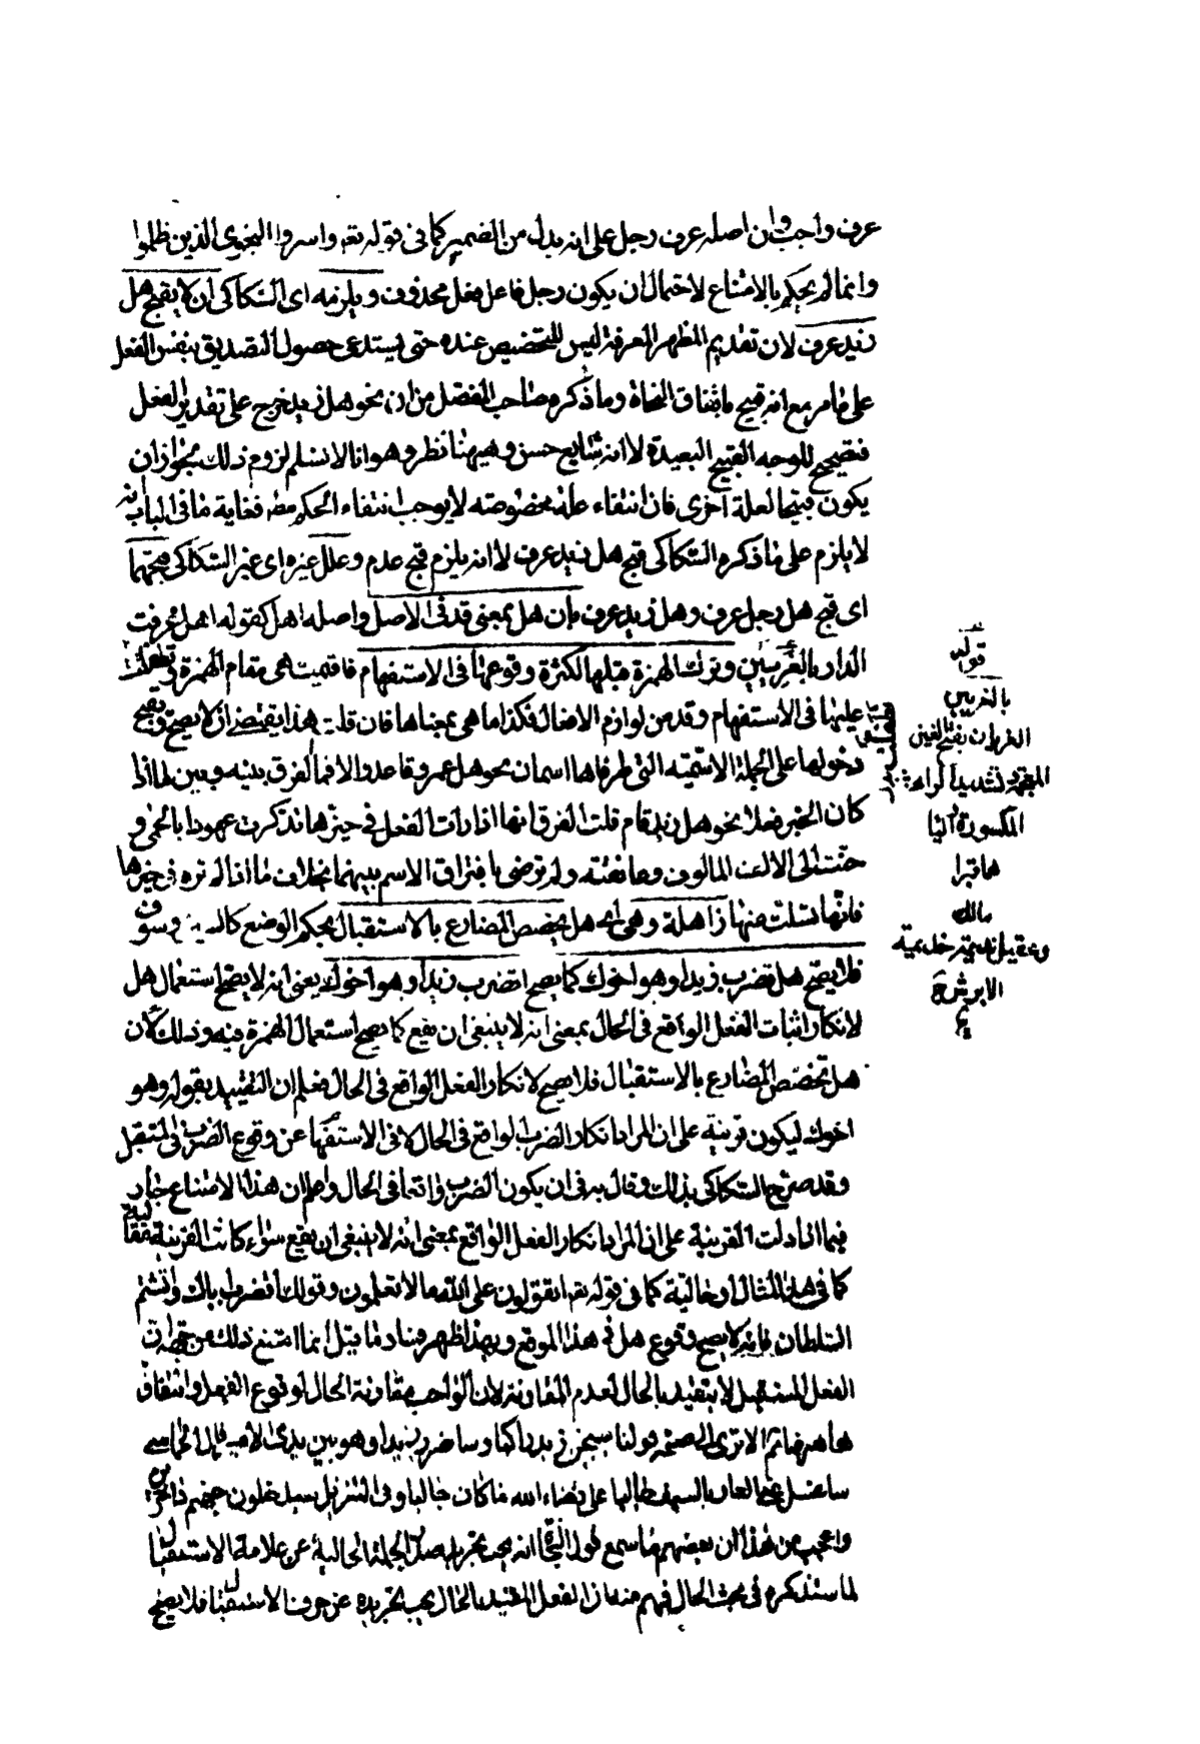 عرف واجب وان اصله عرف رجل على انه بدل من الضمير كما فى قوله تعه واسروا النجوى الذين ظلموا
وانما لم يحكم بالامتناع لاحتمال ان يكون رجل فاعل فعل محذوف ويلزمه اى السكاكى ان لا يقبح هل
زيد عرف لان تقديم المظهر المعرفة ليس للتخصيص عنده حتى يستدعى حصول التصديق بنفس الفعل
على ما مر مع انه قبيح باتفاق النحاة وما ذكره صاحب المفصل من ان نحو هل زيد خرج على تقدير الفعل
فتصحيح للوجه القبيح البعيد لا انه شايع حسن وهيهنا نظر وهو انا لا نسلم لزوم ذلك لجواز ان
يكون قبيحا لعلة اخرى فان انتفاء علة مخصوصته لا يوجب انتفاء الحكم مط فغاية ما فى الباب انه
لا يلزم على ما ذكره السكاكى قبح هل زيد عرف لا انه يلزم قبح عدم وعلل غيره اى غير السكاكى قبحهما
اى قبح هل رجل عرف وهل زيد عرف بان هل بمعنى قد فى الاصل واصله اهل كقوله اهل عرفت
الدار بالغريين وترك الهمزة قبلها لكثرة وقوعها فى الاستفهام فاقيمت هى مقام الهمزة وتطفلت
عليها فى الاستفهام وقد من لوازم الافعال فكذا ما هى بمعناها فان قلت هذا يقتضى ان لا يصح ويقبح
دخولها على الجملة الاسمية التى طرفاها اسمان نحو هل عمرو قاعد والا فما الفرق بينه وبين ما اذا
كان الخبر فعلا نحو هل زيد قام قلت الفرق انها اذا رات الفعل فى حيزها تذكرت عهودا بالحمى و
حنت الى الالف المالوف وعانقته ولم ترض بافتراق الاسم بينهما بخلاف ما اذا لم تره فى حيزها
فانها تسلت عنها ذاهلة وهى اى هل تخصص المضارع بالاستقبال بحكم الوضع كالسين وسوف
فلا يصح هل تضرب زيدا وهو اخوك كما يصح اتضرب زيدا وهو اخوك يعنى انه لا يصح استعمال هل
لانكار اثبات الفعل الواقع فى الحال بمعنى انه لا ينبغى ان يقع كما يصح استعمال الهمزة فيه وذلك لان
هل تخصص المضارع بالاستقبال فلا يصح لانكار الفعل الواقع فى الحال فعلم ان التقييد بقوله وهو
اخوك ليكون قرينة على ان المراد انكار الضرب الواقع فى الحال لا فى الاستفهام عن وقوع الضرب فى المستقبل
وقد صرح السكاكى بذلك وقال فى ان يكون الضرب واقعا فى الحال واعلم ان هذا الامتناع جار
فيما اذا دلت القرينة على ان المراد انكار الفعل الواقع بمعنى انه لا ينبغى ان يقع سواء كانت القرينة مقالية
كما فى هذا المثال او حالية كما فى قوله تعه اتقولون على الله ما لا تعلمون وقولك اتضرب اباك واتشتم
السلطان فانه لا يصح وقوع هل فى هذا الموقع وبهذا ظهر فساد ما قيل انما امتنع ذلك من جهة ان
الفعل المستقبل لا يتقيد بالحال لعدم المقارنة لان الواجب مقارنة الحال لوقوع الفعل وانتفاؤ
ها هيهنا ثم الا ترى الى صحة قولنا سيجئ زيد راكبا وساضرب زيدا وهو بين يدى الامير قال الحماسى
ساغسل عنى العار بالسيف جالبا على قضاء الله ما كان جالبا وفى التنزيل سيدخلون جهنم داخرين
واعجب من هذا ان بعضهم لما سمع قول النحاة انه يجب تجريد صدر الجملة الحالية عن علامة الاستقبال
لما سنذكره فى بحث الحال فهم منه ان الفعل المقيد بالحال يجب تجريده عن حرف الاستقبال فلا يصح
قوله
بالغريين
الغريان بفتح الغين
المعجمة وتشديد الراء
المكسورة
هما قبرا
مالك
وعقيل نديمى جذيمة
الابرش